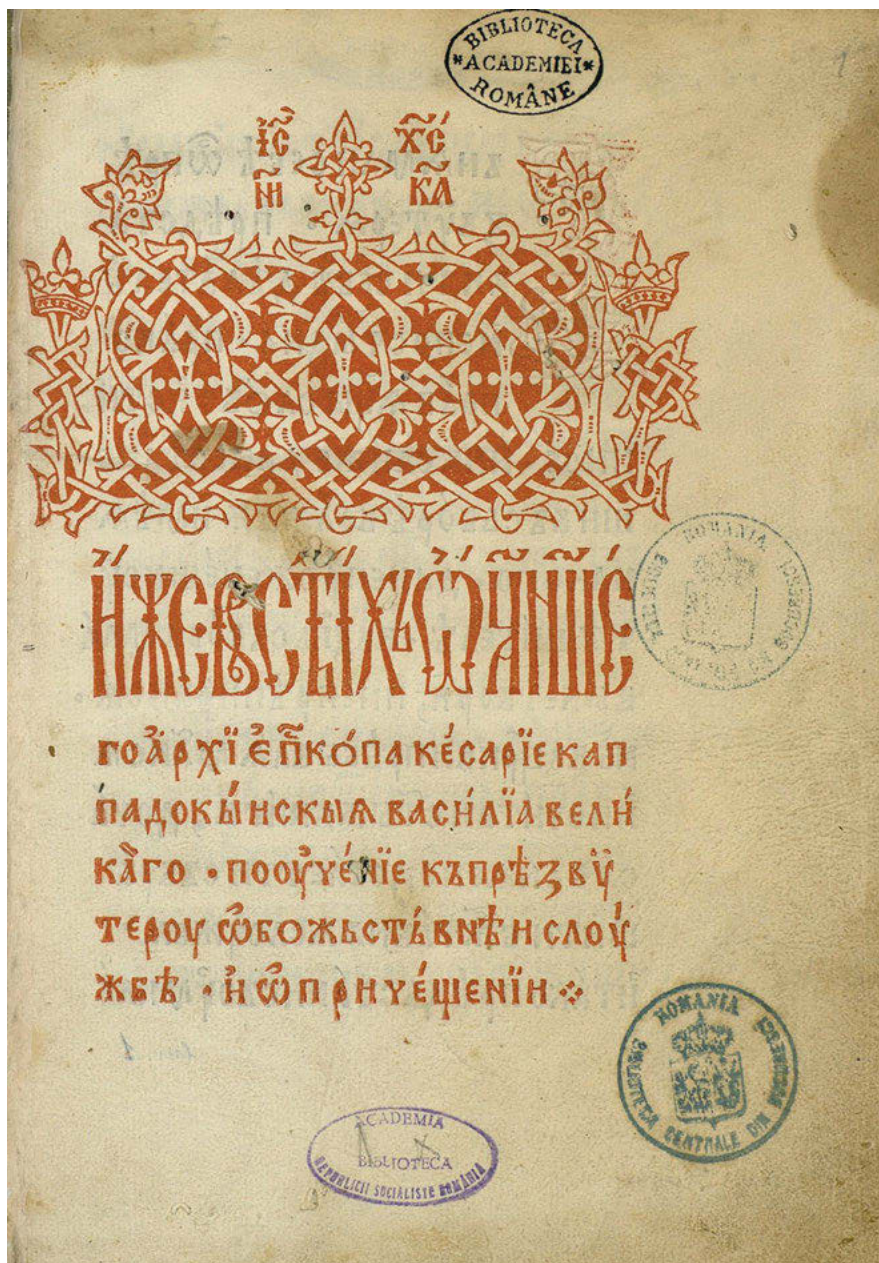 BIBLIOTECA
*ACADEMIEI*
ROMÂNE
1
І҃С Х҃С
НИ КА
И҆́жев ст҃ы́хъ ѿц҃а на́ше
го а҆рхїе҆пⷭ҇ко́па ке́сарїе кап
падокы́нскыѧ васи́лїа вели́
ка҆̀го · поѹ҆че́нїе къ прѣзвѵ̈
тероу ѡ҆божьсть́внѣи слоу҆́
жбѣ · и҆ ѡ҆ причеще́нїи ⁘
ROMANIA
ROMANIA
BIBLIOTECA CENTRALE DIN BUCURESCI
ACADEMIA
BIBLIOTECA
REPUBLICII SOCIALISTE ROMÂNIA